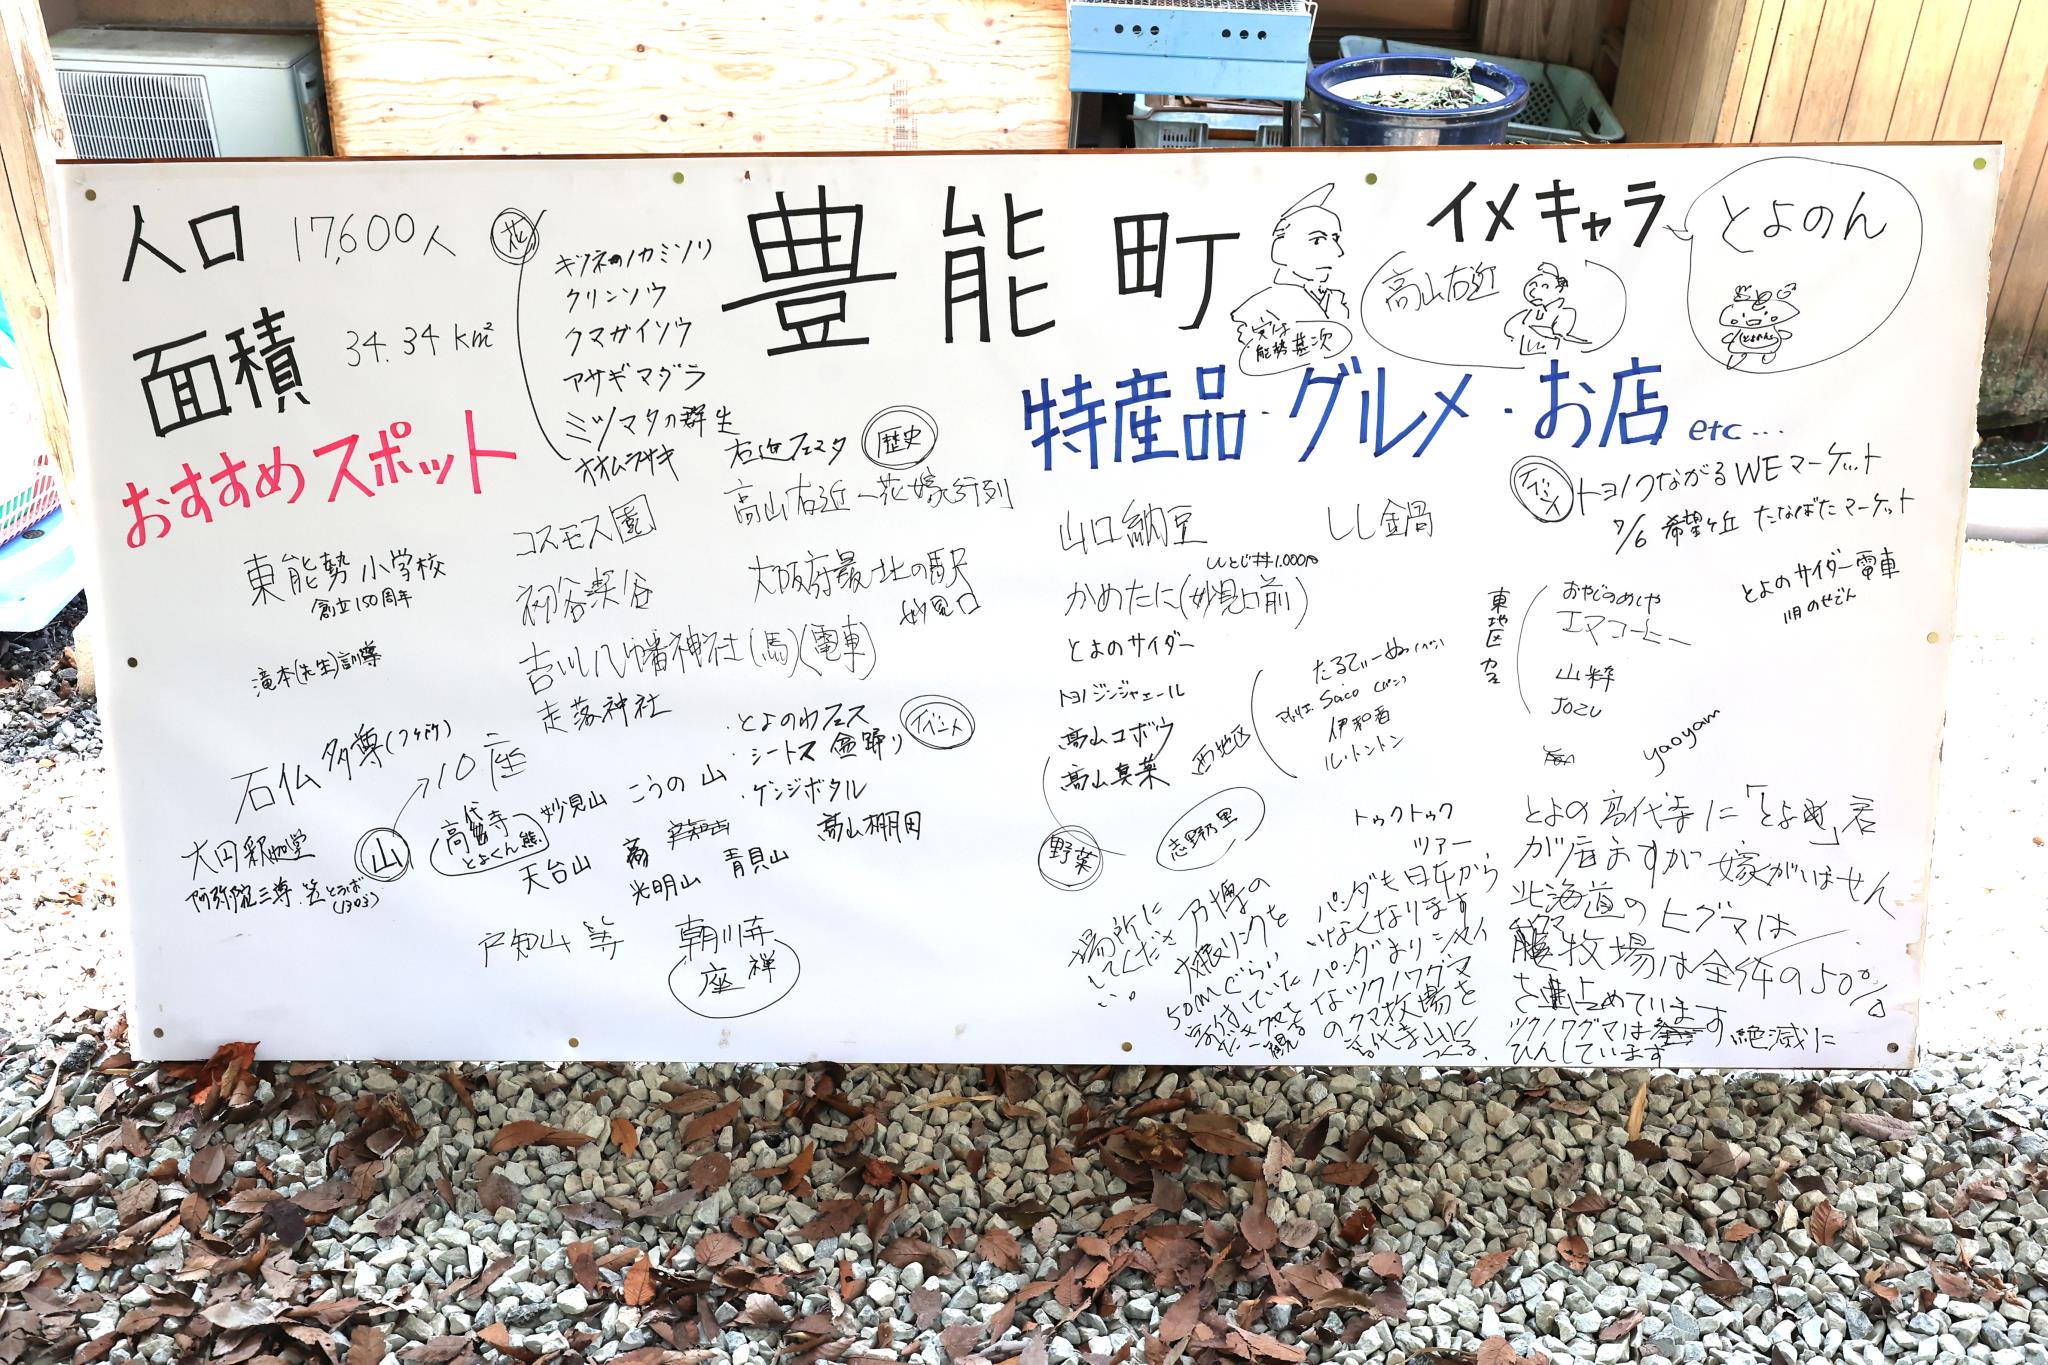 人口 17,600人
面積 34.34 km²
豊能町
イメキャラ
とよのん
とよのん
高山右近
実は
能勢 基次
花
キツネのカミソリ
クリンソウ
クマガイソウ
アサギマダラ
ミツマタの群生
オオムラサキ
おすすめスポット
東能勢小学校
創立150周年
滝本(先生)訓導
石仏 多尊
大円釈迦堂
山
10座
高代寺
とよくん熊
妙見山
こうの山
天台山
光明山
青貝山
高山棚田
戸知山 等
朝川寺
座禅
コスモス園
初谷渓谷
吉川八幡神社(馬)(電車)
走落神社
歴史
右近フェスタ
高山右近 花嫁行列
大阪府最北の駅
妙見口
イベント
・とよのわフェス
・シートス 盆踊り
・ゲンジボタル
特産品・グルメ・お店 etc...
山口納豆
しし鍋
ししとじ丼1,000円
かめたに(妙見口前)
とよのサイダー
トヨノジンジャエール
高山ゴボウ
高山真菜
野菜
志野の里
西地区
たるてぃーぬ(パン)
Saico (パン)
伊和香
ル・トントン
イベント
トヨノノつながるWEマーケット
7/6 希望ヶ丘 たなばたマーケット
とよのサイダー電車
東地区 カフェ
おやじのめしや
エマコーヒー
山粋
JOZU
yaoyam
トゥクトゥク
ツアー
とよの高代寺に「とよ」君
が居ますが嫁がいません
北海道のヒグマは
牧場は全体の50%
を占めています
ツクノワグマは
絶滅に
ひんしています
パンダも日本から
いなくなります
パンダよりシャイ
なツクノワグマ
のクマ牧場を
高代寺山に
つくる。
50mぐらい
寄付していた
場所に
してくださ
い。